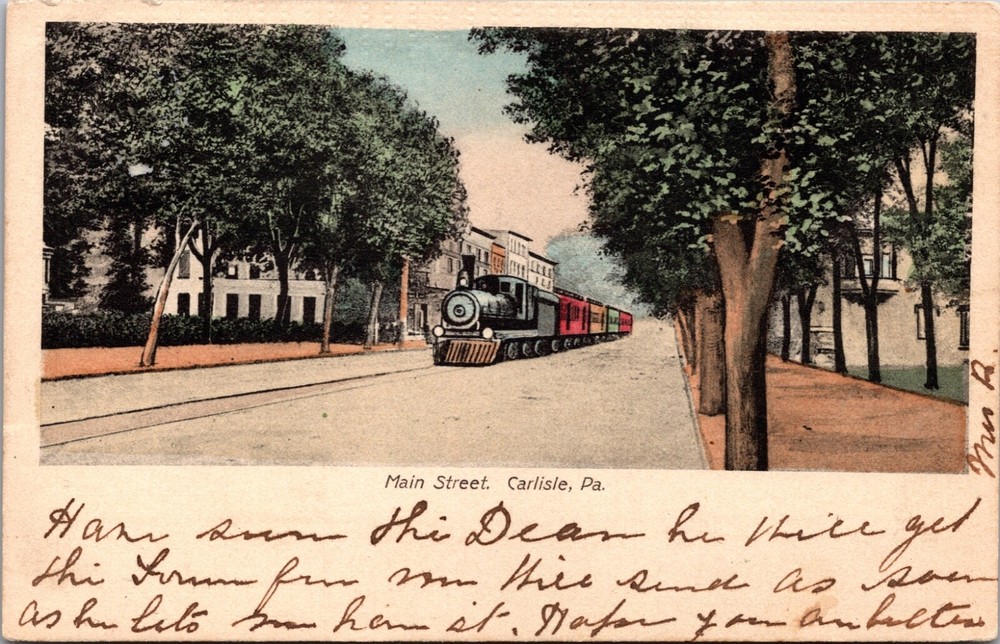 Main Street. Carlisle, Pa.
Have seen the Dean he will get
the Form for me will send as soon
as he lets me have it. Hope you are better
Mrs R.